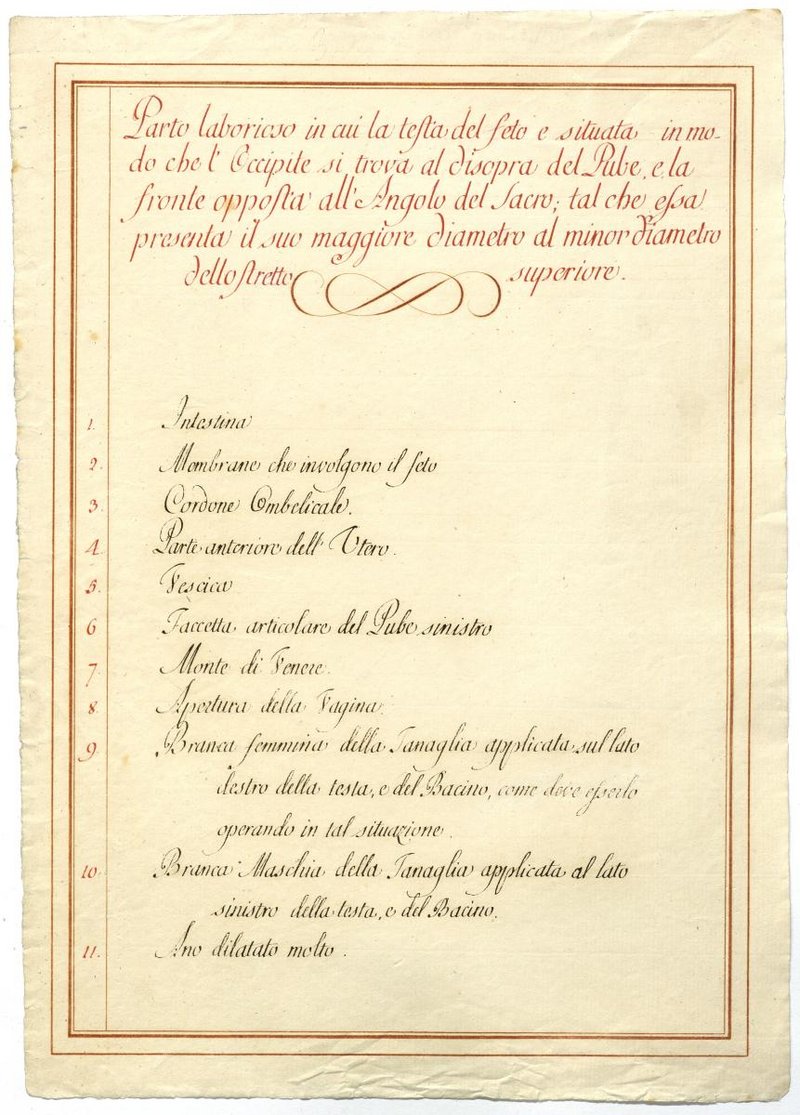 Parto laborioso in cui la testa del feto e situata in mo-
do che l' Occipite si trova al disopra del Pube, e la
fronte opposta all' Angolo del Sacro; tal che essa
presenta il suo maggiore diametro al minor diametro
dello stretto superiore.
1. Intestina
2. Membrane che involgono il feto
3. Cordone Ombelicale.
4. Parte anteriore dell' Utero.
5. Vescica
6 Faccetta articolare del Pube sinistro
7. Monte di Venere.
8. Apertura della Vagina.
9. Branca femmina della Tanaglia applicata sul lato
destro della testa, e del Bacino, come deve esserlo
operando in tal situazione.
10. Branca Maschia della Tanaglia applicata al lato
sinistro della testa, e del Bacino.
11. Ano dilatato molto.